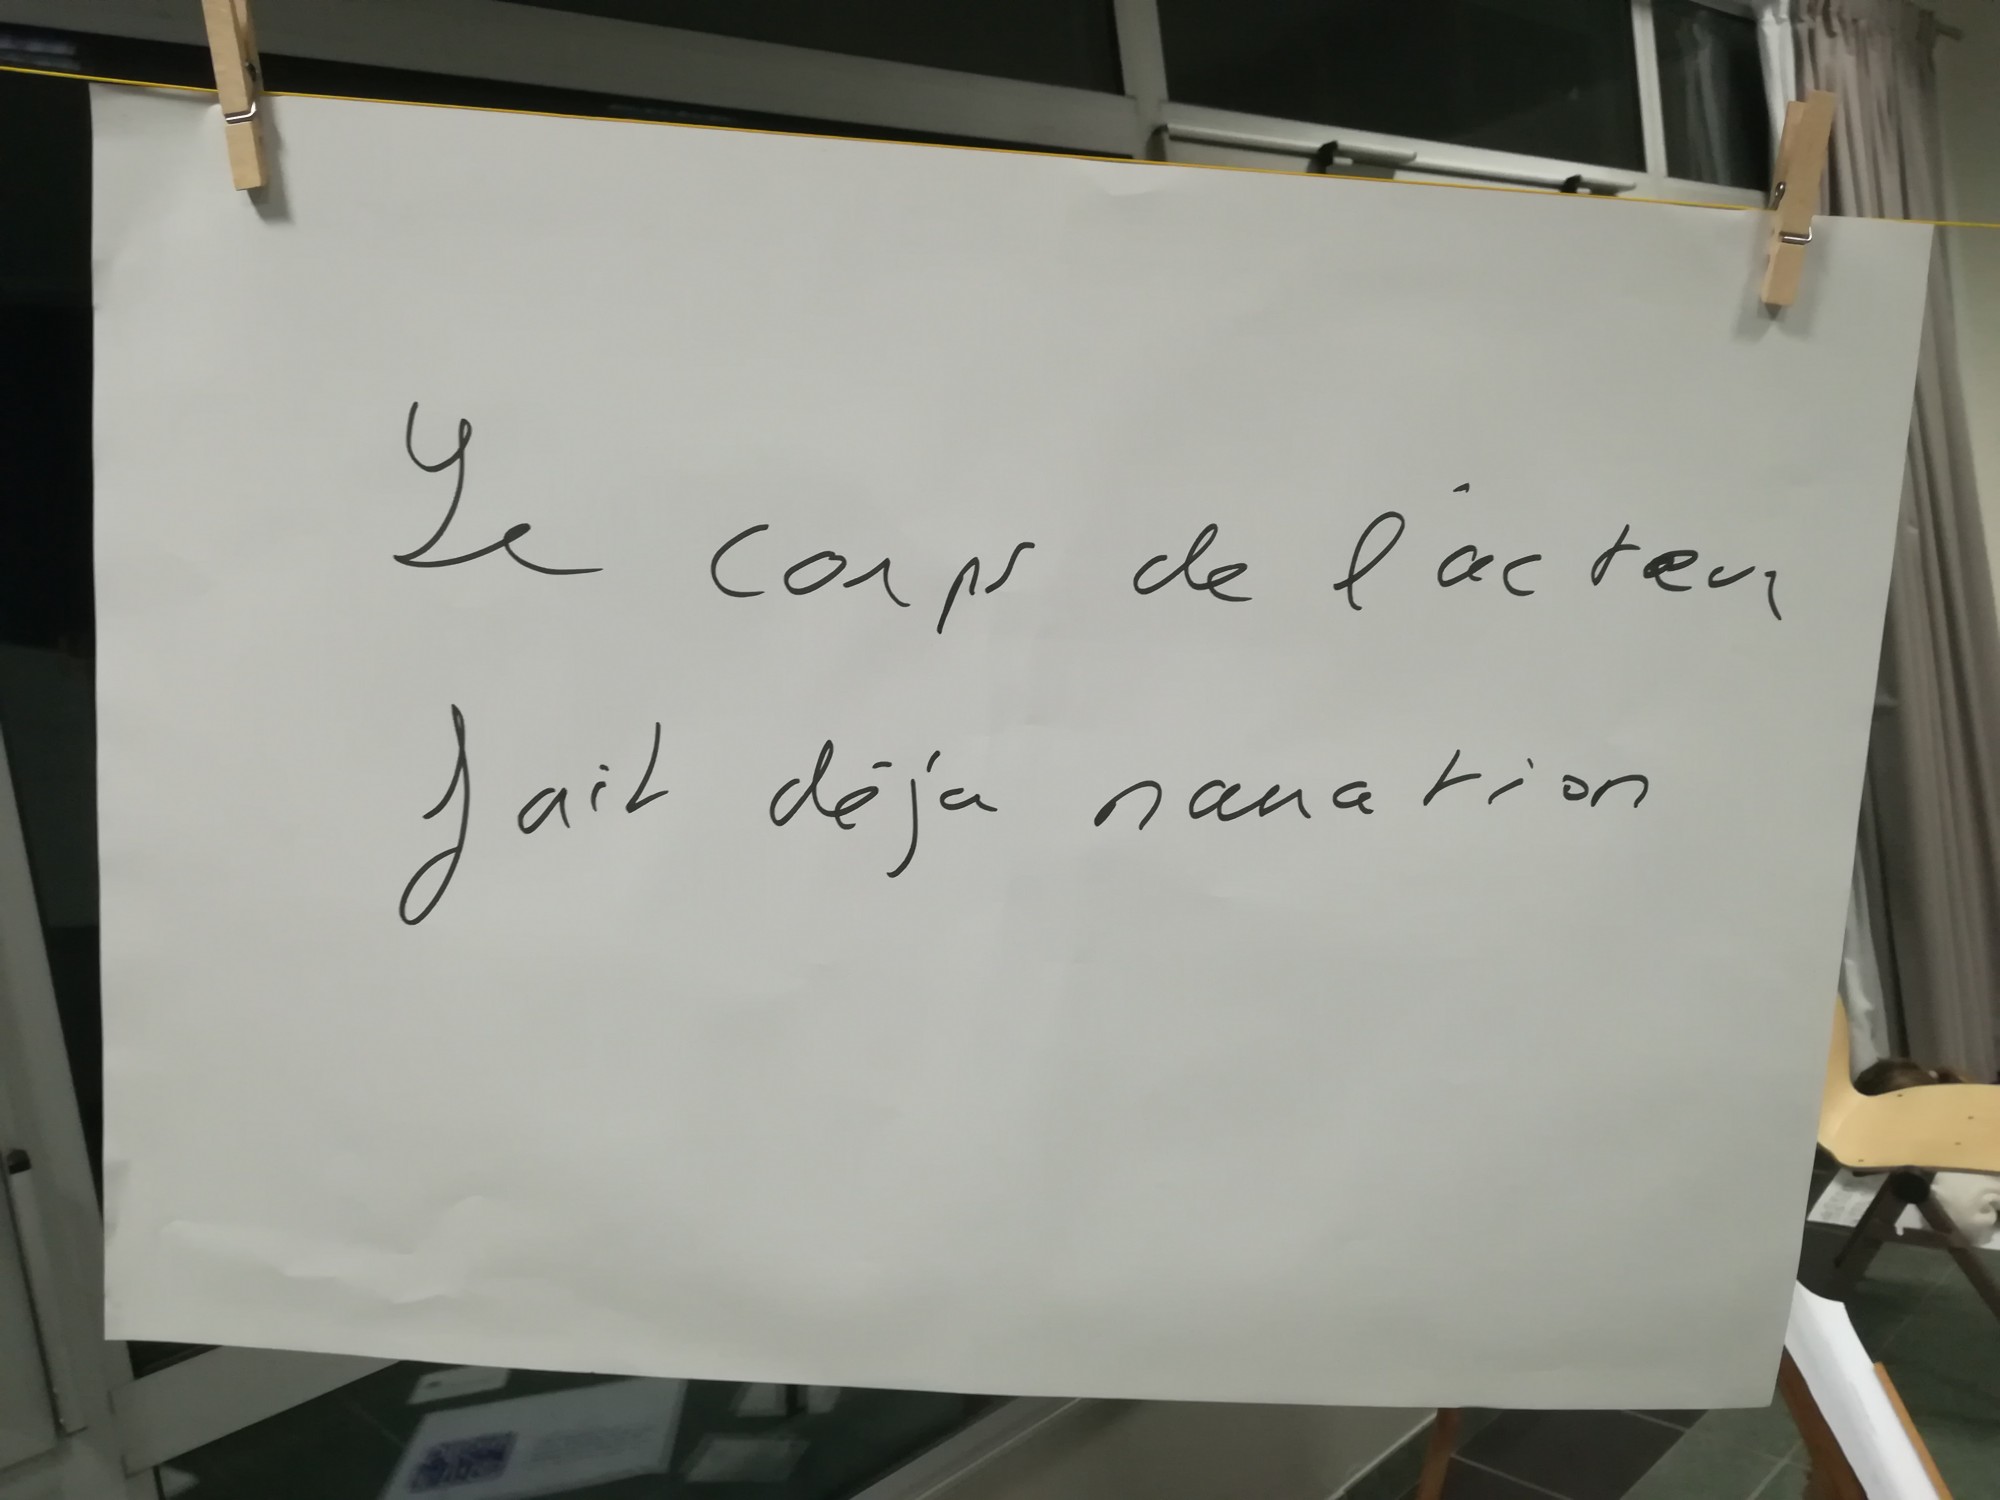 Le corps de l'acteur
fait déjà narration